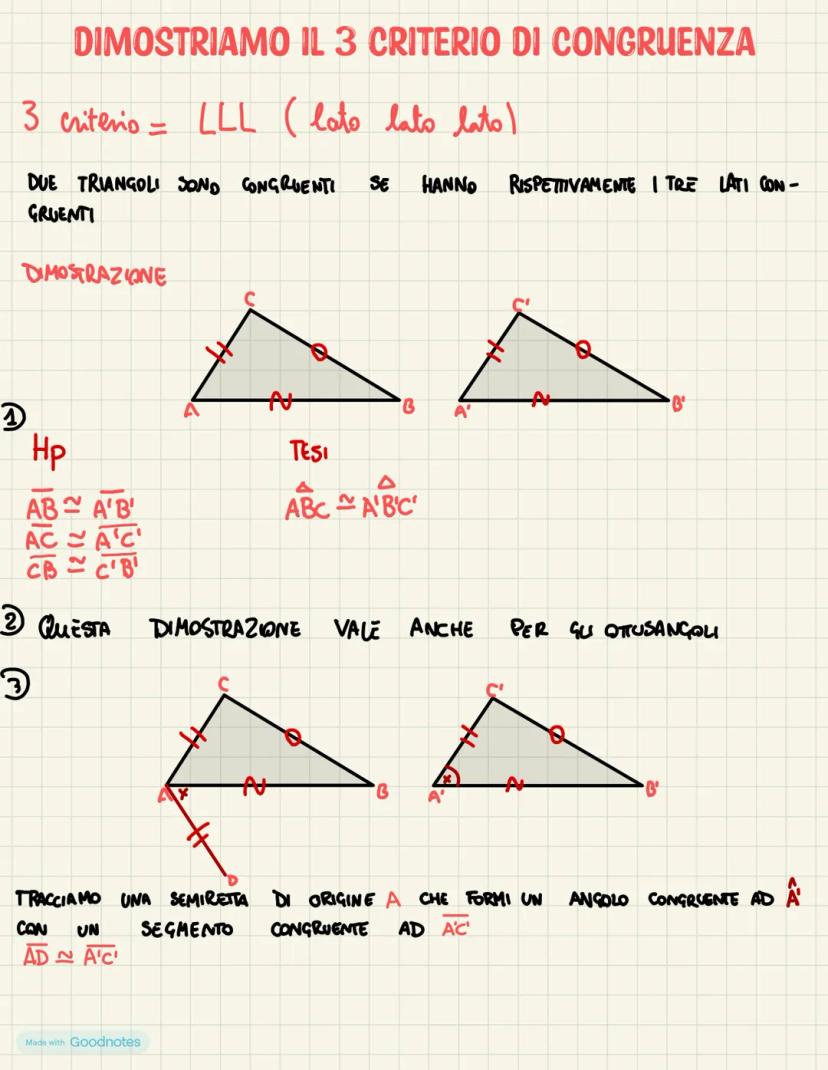 DIMOSTRIAMO IL 3 CRITERIO DI CONGRUENZA
3 criterio = LLL (lato lato lato)
DUE TRIANGOLI SONO CONGRUENTI SE HANNO RISPETTIVAMENTE I TRE LATI CON-
GRUENTI
DIMOSTRAZIONE
C C'
A B A' B'
1
Hp TESI
AB ≅ A'B' ABC ≅ A'B'C'
AC ≅ A'C'
CB ≅ C'B'
2 QUESTA DIMOSTRAZIONE VALE ANCHE PER GLI OTTUSANGOLI
3
C C'
A x B A' x B'
D
TRACCIAMO UNA SEMIRETTA DI ORIGINE A CHE FORMI UN ANGOLO CONGRUENTE AD Â'
CON UN SEGMENTO CONGRUENTE AD A'C'
AD ≅ A'C'
Made with Goodnotes